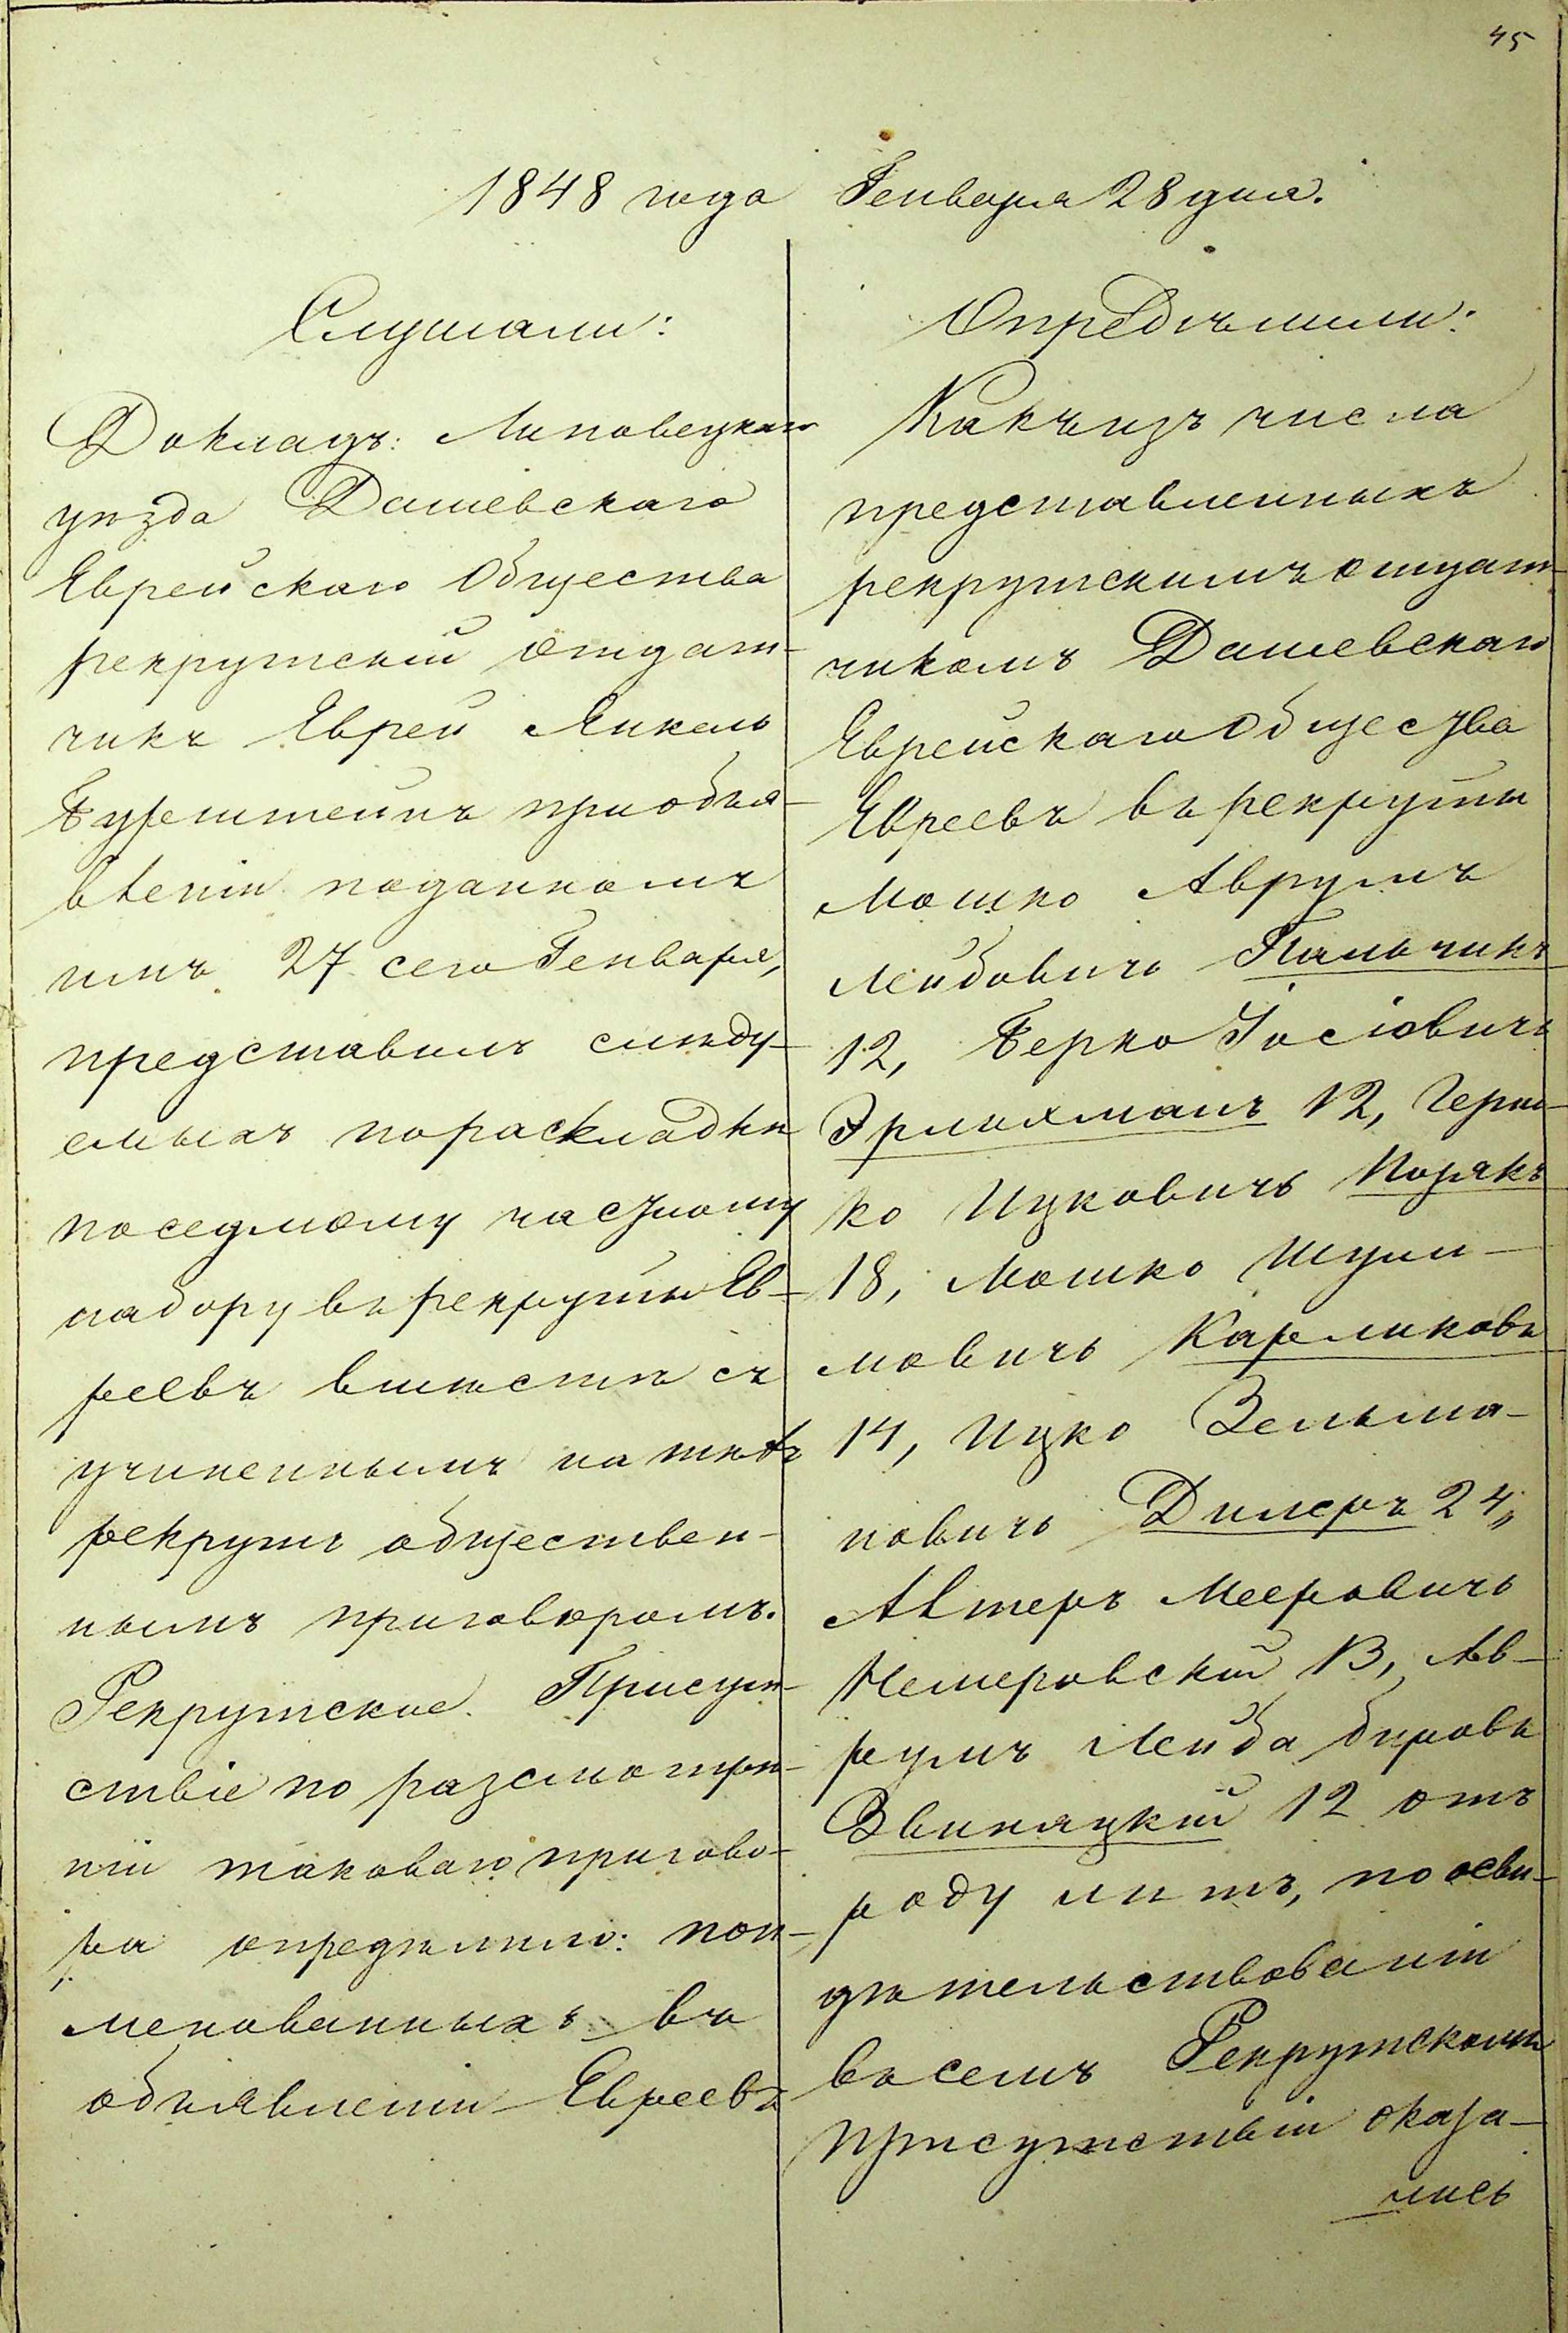 45
1848 года Генваря 28 дня.
Слушали:
Докладъ: Липовецкаго
уѣзда Дашевскаго
Еврейскаго Общества
рекрутскій отдат-
чикъ Еврей Янкель
приобъя-
вленіи поданномъ
имъ 27 сего Генваря,
представилъ слѣду-
емыхъ по раскладкѣ
по седмому частному
набору въ рекруты Ев-
реевъ вмѣстѣ съ
учиненнымъ на тѣхъ
рекрутъ обществен-
нымъ приговоромъ.
Рекрутское Присут-
ствіе по разсмотрѣ-
ніи таковаго пригово-
ра опредѣлило: пои-
менованныхъ въ
объявленіи Евреевъ
Опредѣлили:
Какъ изъ числа
представленныхъ
рекрутскимъ отдат-
чикомъ Дашевскаго
Еврейскаго Общества
Евреевъ въ рекруты
Мошко Аврумъ
Лейбовичъ Пальчикъ
12, Берко Іосіовичъ
Эрлихманъ 12, Герш-
ко Ицковичъ
18, Мошко Шули-
мовичъ Карликовъ
14, Ицко Зельма-
новичъ Дилеръ 24,,
Алтеръ Мееровичъ
Немеровскій 13, Ав-
румъ Лейба
Звиняцкій 12 отъ
роду лѣтъ, по осви-
дѣтельствованіи
въ семъ Рекрутскомъ
присутствіи оказа-
лись